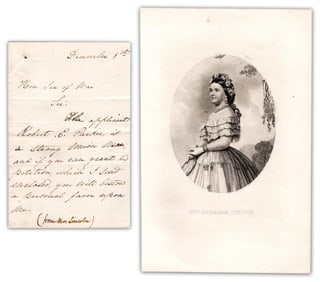 December 8th
Hon Sec of War
Sir.
The applicant
Robert E. Parker, is
a strong Union Man
and if you can grant his
petition, which I send
enclosed, you will bestow
a personal favor upon
me.
(from Mrs Lincoln)
MRS ABRAHAM LINCOLN